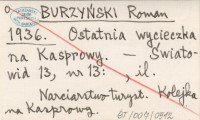 BURZYŃSKI Roman
1936. Ostatnia wycieczka
na Kasprowy. — Świato-
wid 13, nr 13: , il.
Narciarstwo turyst. Kolejka
na Kasprowy.